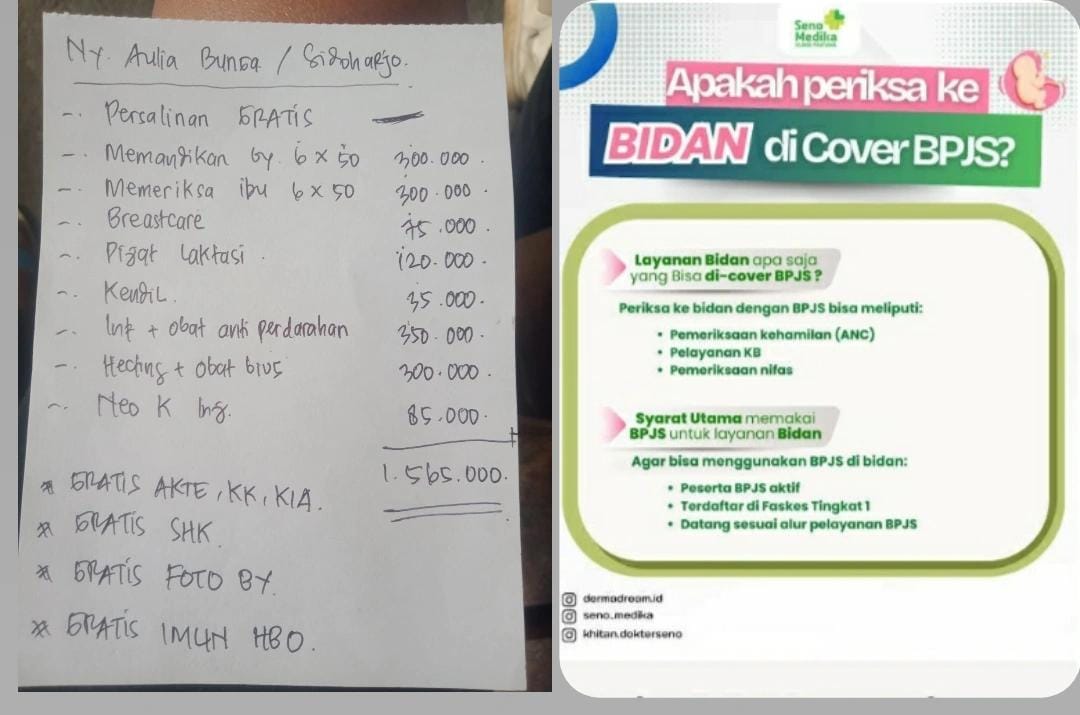 Ny. Aulia Bunga / Sidoharjo.
-. Persalinan GRATIS —
-. Memandikan by. 6 x 50 300.000.
-. Memeriksa ibu 6 x 50 300.000.
-. Breastcare 75.000.
-. Pijat Laktasi. 120.000.
-. Kendil. 35.000.
-. Inf + obat anti perdarahan 350.000.
-. Hecting + obat bius 300.000.
-. Neo K Inj. 85.000.
+
1.565.000.
* GRATIS AKTE, KK, KIA.
* GRATIS SHK.
* GRATIS FOTO BY.
* GRATIS IMUN HB0.
Seno
Medika
Apakah periksa ke
BIDAN di Cover BPJS?
Layanan Bidan apa saja
yang Bisa di-cover BPJS ?
Periksa ke bidan dengan BPJS bisa meliputi:
• Pemeriksaan kehamilan (ANC)
• Pelayanan KB
• Pemeriksaan nifas
Syarat Utama memakai
BPJS untuk layanan Bidan
Agar bisa menggunakan BPJS di bidan:
• Peserta BPJS aktif
• Terdaftar di Faskes Tingkat 1
• Datang sesuai alur pelayanan BPJS
dermadream.id
seno.medika
khitan.dokterseno